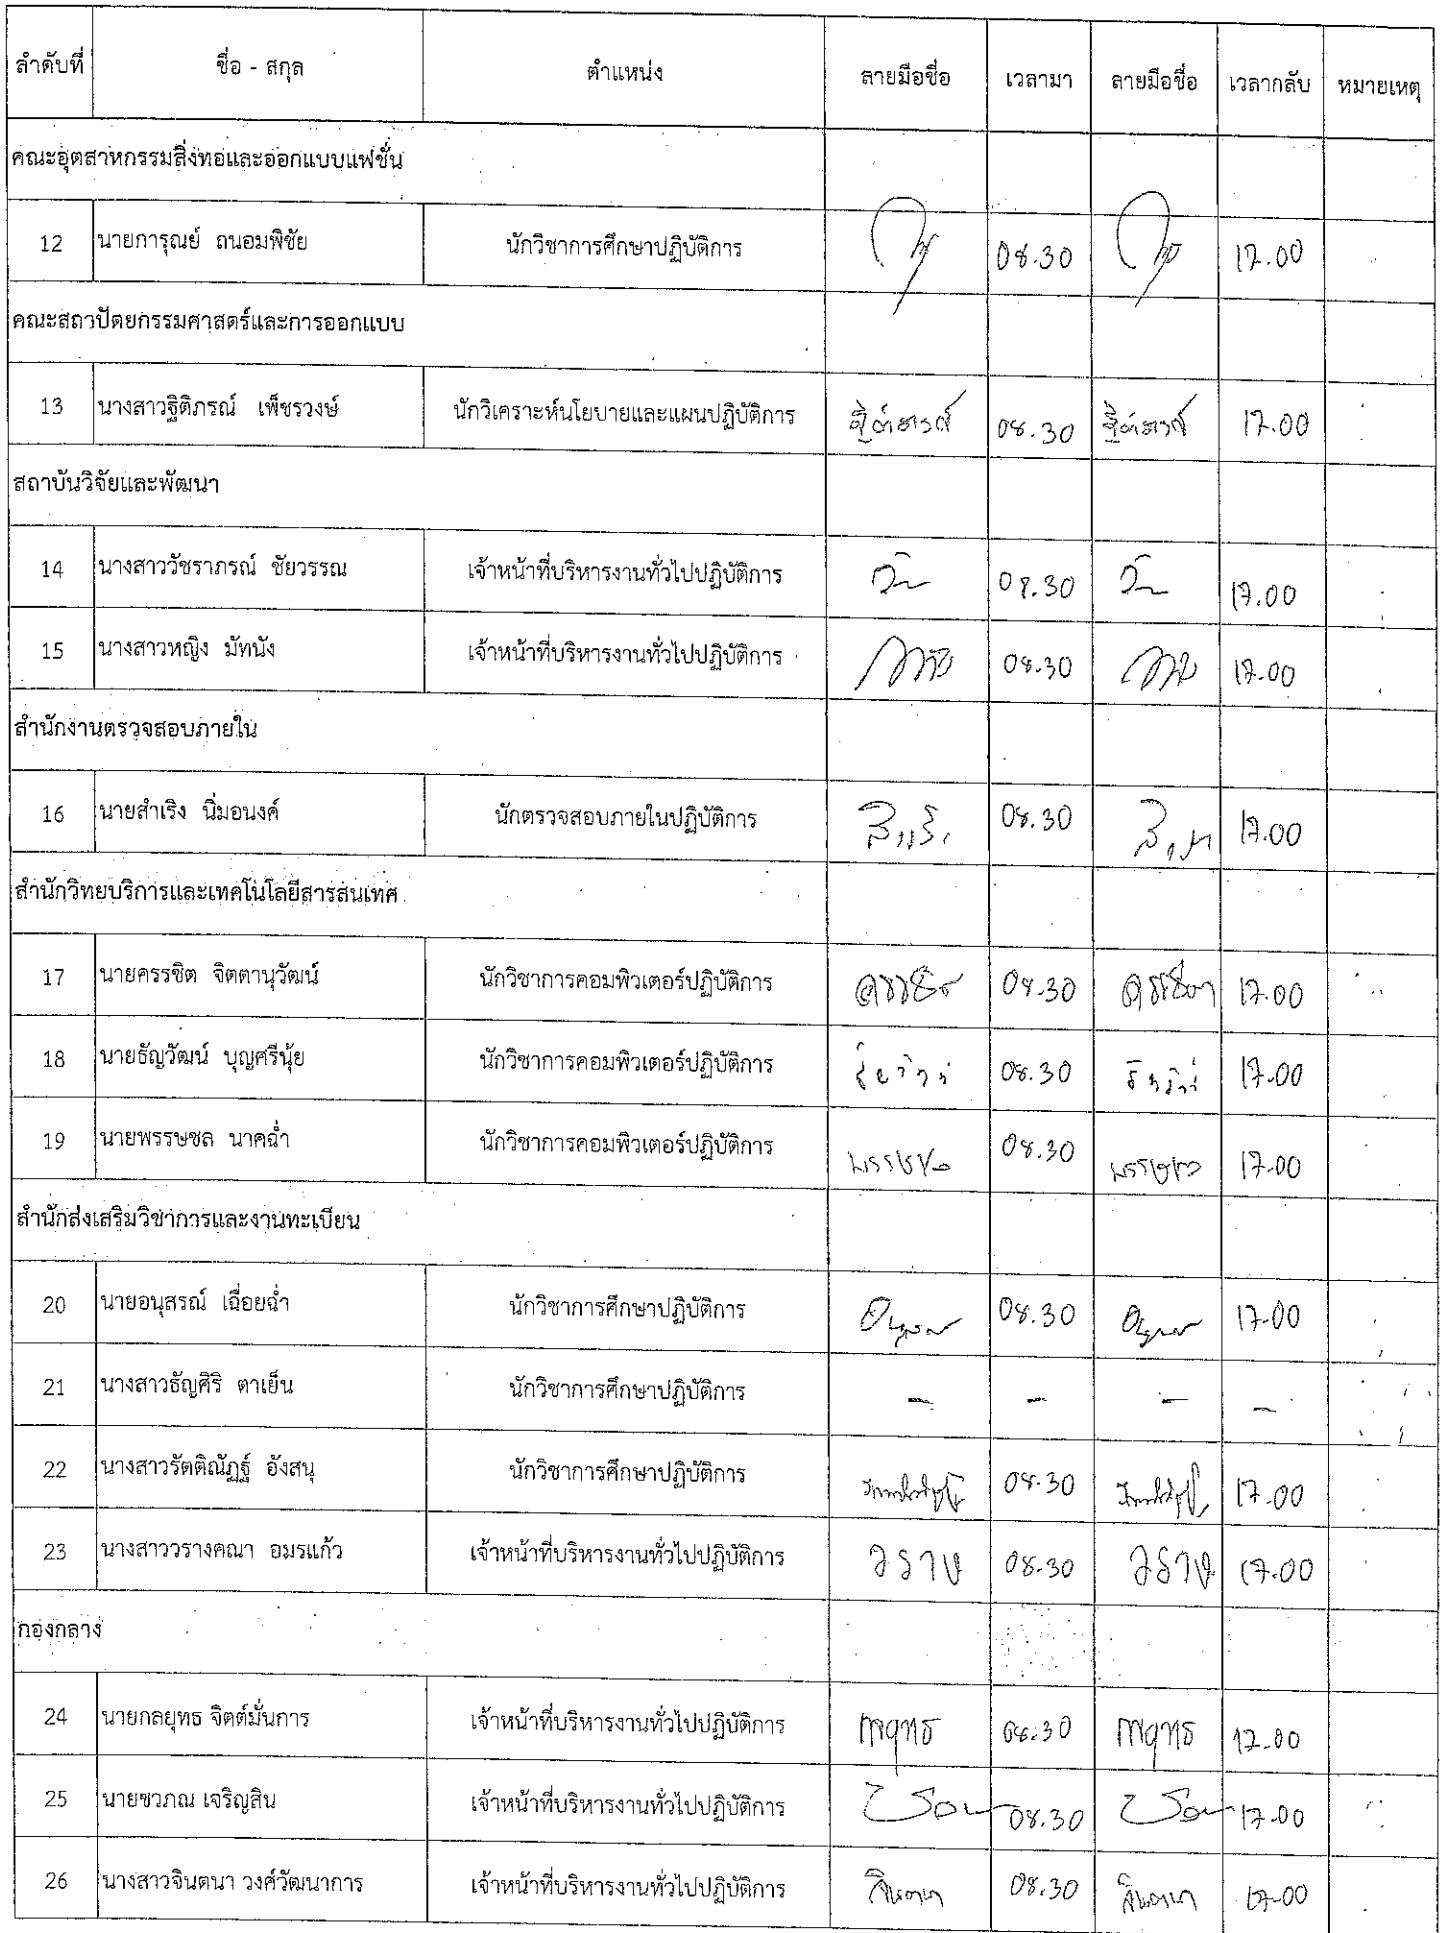 ลำดับที่ ชื่อ - สกุล ตำแหน่ง ลายมือชื่อ เวลามา ลายมือชื่อ เวลากลับ หมายเหตุ
คณะอุตสาหกรรมสิ่งทอและออกแบบแฟชั่น
12 นายการุณย์ ถนอมพิชัย นักวิชาการศึกษาปฏิบัติการ 08.30 17.00
คณะสถาปัตยกรรมศาสตร์และการออกแบบ
13 นางสาวฐิติภรณ์ เพ็ชรวงษ์ นักวิเคราะห์นโยบายและแผนปฏิบัติการ ฐิติภรณ์ 08.30 ฐิติภรณ์ 17.00
สถาบันวิจัยและพัฒนา
14 นางสาววัชราภรณ์ ชัยวรรณ เจ้าหน้าที่บริหารงานทั่วไปปฏิบัติการ 08.30 17.00
15 นางสาวหญิง มัทนัง เจ้าหน้าที่บริหารงานทั่วไปปฏิบัติการ 08.30 17.00
สำนักงานตรวจสอบภายใน
16 นายสำเริง นิ่มอนงค์ นักตรวจสอบภายในปฏิบัติการ 08.30 17.00
สำนักวิทยบริการและเทคโนโลยีสารสนเทศ
17 นายครรชิต จิตตานุวัฒน์ นักวิชาการคอมพิวเตอร์ปฏิบัติการ ครรชิต 08.30 ครรชิต 17.00
18 นายธัญวัฒน์ บุญศรีนุ้ย นักวิชาการคอมพิวเตอร์ปฏิบัติการ 08.30 17.00
19 นายพรรษชล นาคฉ่ำ นักวิชาการคอมพิวเตอร์ปฏิบัติการ พรรษชล 08.30 พรรษชล 17.00
สำนักส่งเสริมวิชาการและงานทะเบียน
20 นายอนุสรณ์ เฉื่อยฉ่ำ นักวิชาการศึกษาปฏิบัติการ 08.30 17.00
21 นางสาวธัญศิริ ตาเย็น นักวิชาการศึกษาปฏิบัติการ - - - -
22 นางสาวรัตติณัฏฐ์ อังสนุ นักวิชาการศึกษาปฏิบัติการ 08.30 17.00
23 นางสาววรางคณา อมรแก้ว เจ้าหน้าที่บริหารงานทั่วไปปฏิบัติการ 08.30 17.00
กองกลาง
24 นายกลยุทธ จิตต์มั่นการ เจ้าหน้าที่บริหารงานทั่วไปปฏิบัติการ กลยุทธ 08.30 กลยุทธ 17.00
25 นายชวภณ เจริญสิน เจ้าหน้าที่บริหารงานทั่วไปปฏิบัติการ 08.30 17.00
26 นางสาวจินตนา วงศ์วัฒนาการ เจ้าหน้าที่บริหารงานทั่วไปปฏิบัติการ จินตนา 08.30 จินตนา 17.00